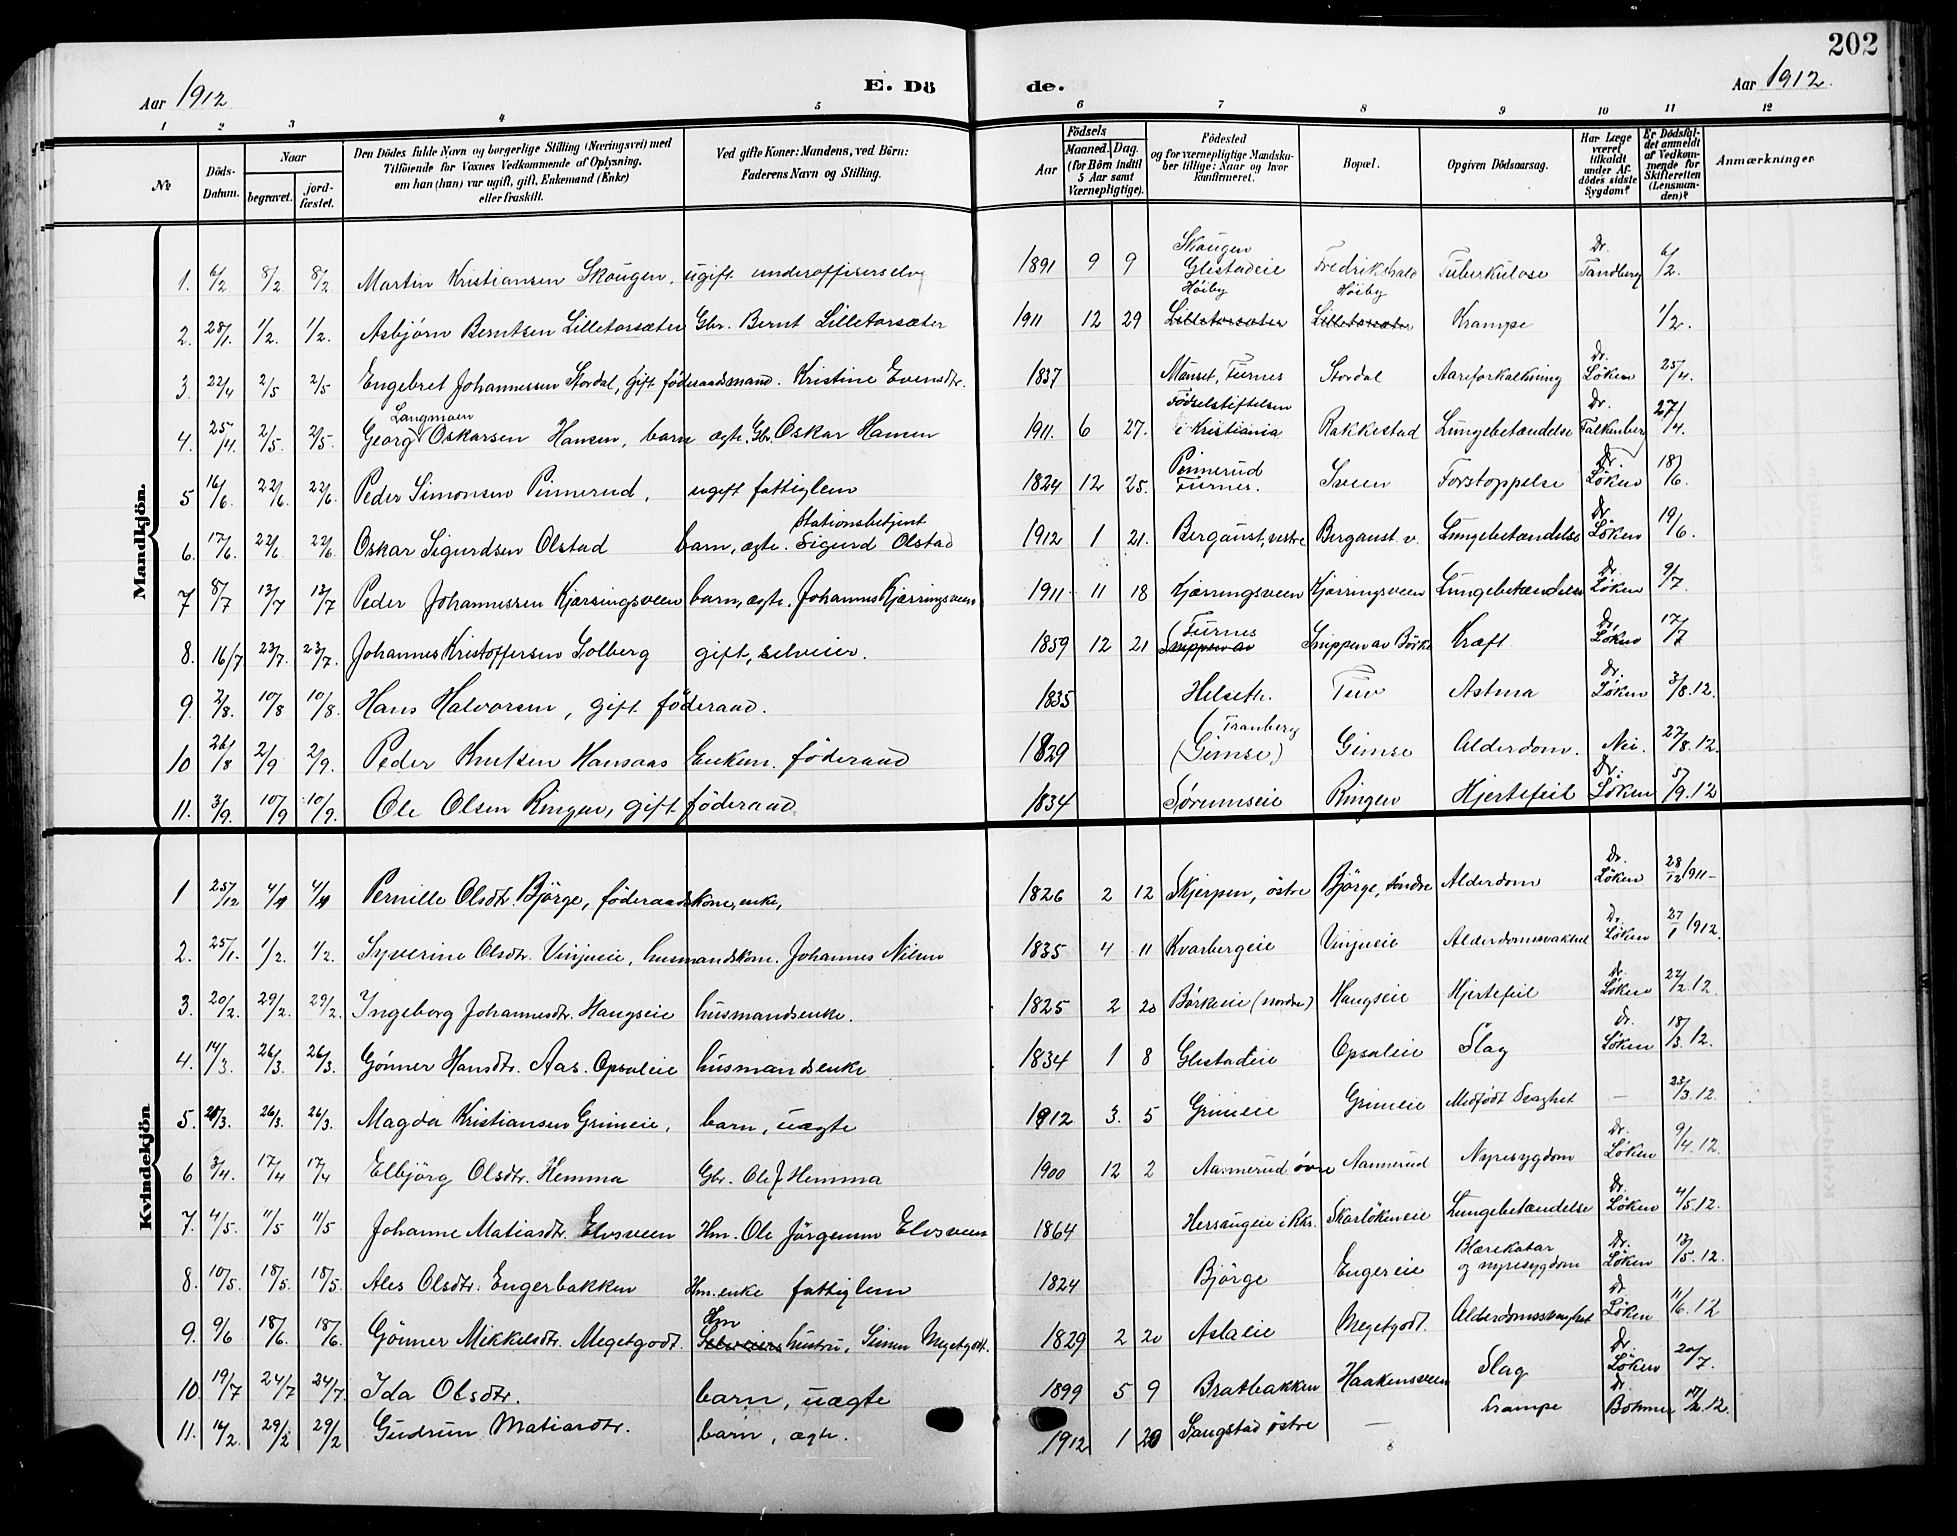 202
Aar 1912
E. Dö
de.
Aar 1912.
1 2 3 4 5 6 7 8 9 10 11 12
№
Döds-Datum.
Naar
begravet.
jordfæstet.
Den Dödes fulde Navn og borgerlige Stilling (Næringsvei) med
Tilföiende for Voxnes Vedkommende af Oplysning,
om han (hun) var ugift, gift, Enkemand (Enke)
eller fraskilt.
Ved gifte Koner: Mandens, ved Börn:
Faderens Navn og Stilling.
Födsels
Aar
Maaned. Dag.
(for Börn indtil 5 Aar samt Værnepligtige).
Födested
og for værnepligtige Mandskaber tillige: Naar og hvor konfirmeret.
Bopæl.
Opgiven Dödsaarsag.
Har Læge været tilkaldt under Afdödes sidste Sygdom?
Er Dödsfaldet anmeldt af Vedkommende for Skifteretten (Lensmanden)?
Anmærkninger
Mandkjön.
1. 6/2 8/2 8/2 Martin Kristiansen Skougen, ugift underofficerselv 1891 9 9 Skougen Glestadeie Fredrikshald Tuberkulose Dr. Tandberg 6/2.
2. 28/1. 1/2. 1/2. Asbjörn Berntsen Lilletorsæter Gbr. Bernt Lilletorsæter 1911 12 29 Höiby Lilletorsæter Höiby Lilletorsæter Krampe 1/2.
3 22/4 2/5 2/5 Engebret Johannessen Stordal, gift föderaadsmand. Kristine Evensdtr. 1837 Manset, Furnes Stordal Aareforkalkning Dr. Löken 25/4.
4. 25/4. 2/5. 2/5. Georg Langmoen Oskarsen Hansen, barn ægte, Gbr. Oskar Hansen 1911. 6 27. Födselstiftelsen i Kristiania Rakkestad Lungebetændelse Dr. Falkenberg 27/4.
5 16/6 22/6 22/6. Peder Simonsen Pinnerud, ugift fattiglem 1824 12 25. Pinnerud Furnes. Sveen Forstoppelse Dr. Löken 18/6.
6. 17/6. 22/6 22/6. Oskar Sigurdsen Olstad barn, ægte. Stationsbetjent Sigurd Olstad 1912 1 21. Bergaust, vestre Bergaust v. Lungebetændelse Dr. Löken 19/6.
7 8/7 13/7 13/7 Peder Johannessen Kjærringsveen barn, ægte. Johannes Kjærringsveen 1911. 11 18 Kjærringsveen Kjærringsveen Lungebetændelse Dr. Löken 9/7.
8. 16/7 23/7. 23/7. Johannes Kristoffersen Solberg gift, selveier. 1859 12 21 Furnes Snippen av Snippen av Börke Kræft Dr. Löken 17/7
9. 2/8. 10/8 10/8. Hans Halvorsen, gift föderaad. 1835 Helseth. Tuv Astma Dr. Löken 3/8.12.
10 26/8 2/9 2/9. Peder Knutsen Hansaas Enkem. föderaad 1829 Tranberg (Gimse) Gimse Alderdom. Nei. 27/8.12.
11. 3/9. 10/9 10/9. Ole Olsen Ringen, gift föderaad 1834 Sörumseie Ringen Hjertefeil Dr. Löken 5/9.12
Kvindekjön
1 25/12 4/1 4/1 Pernille Olsdtr. Björge, föderaadskone, enke, 1826 2 12 Skjerpen, östre Björge, söndre Alderdom Dr. Löken 28/12 1911
2. 25/1. 1/2. 1/2. Syverine Olsdtr. Vinjueie, husmandskone. Johannes Nilsen 1835 4 11 Kvarbergeie Vinjueie Alderdomssvakhet Dr. Löken 27/1 1912.
3. 20/2. 29/2. 29/2. Ingeborg Johannesdtr. Haugseie husmandsenke. 1825 2 20 Börkeeie (nordre) Haugseie Hjertefeil Dr. Löken 22/2.12.
4. 14/3. 26/3. 26/3. Gönner Hansdtr. Aas. Opsaleie husmandsenke 1834 1 8 Glestadeie Opsaleie Slag Dr. Löken 18/3.12.
5. 20/3. 26/3. 26/3. Magda Kristiansen Grimeie, barn, uægte 1912 3. 5 Grimeie Grimeie Medfödt Svaghet — 23/3.12.
6 3/4. 17/4 17/4 Elbjörg Olsdtr. Hemma Gbr. Ole J Hemma 1900 12 2 Aannerud övre Aannerud Nyresygdom Dr. Löken 9/4.12.
7. 4/5. 11/5 11/5 Johanne Matiasdtr. Elvsveen Hm. Ole Jörgensen Elvsveen 1864 Hersaugeie i Rks. Skarlökeneie Lungebetændelse Dr. Löken 4/5.12.
8. 10/5. 18/5. 18/5. Ales Olsdtr. Engerbakken Hm. enke fattiglem 1824 Björge Engereie Blærekatar og nyresygdom Dr. Löken 13/5.12.
9. 9/6 18/6. 18/6. Gönner Mikkelsdtr. Megetgodt. Hm Selveiers hustru, Simen Megetgodt. 1829 2 20 Aslaeie Megetgodt. Alderdomssvaghet Dr. Löken 11/6.12
10. 19/7 24/7 24/7. Ida Olsdtr. barn, uægte 1899 5 9 Bratbakken Haakensveen Slag Dr. Löken 20/7.
11. 14/2. 29/2 29/2 Gudrun Matiasdtr. barn, ægte. 1912 1 20 Saugstad östre — Krampe Dr. Böhmer 17/2.12.